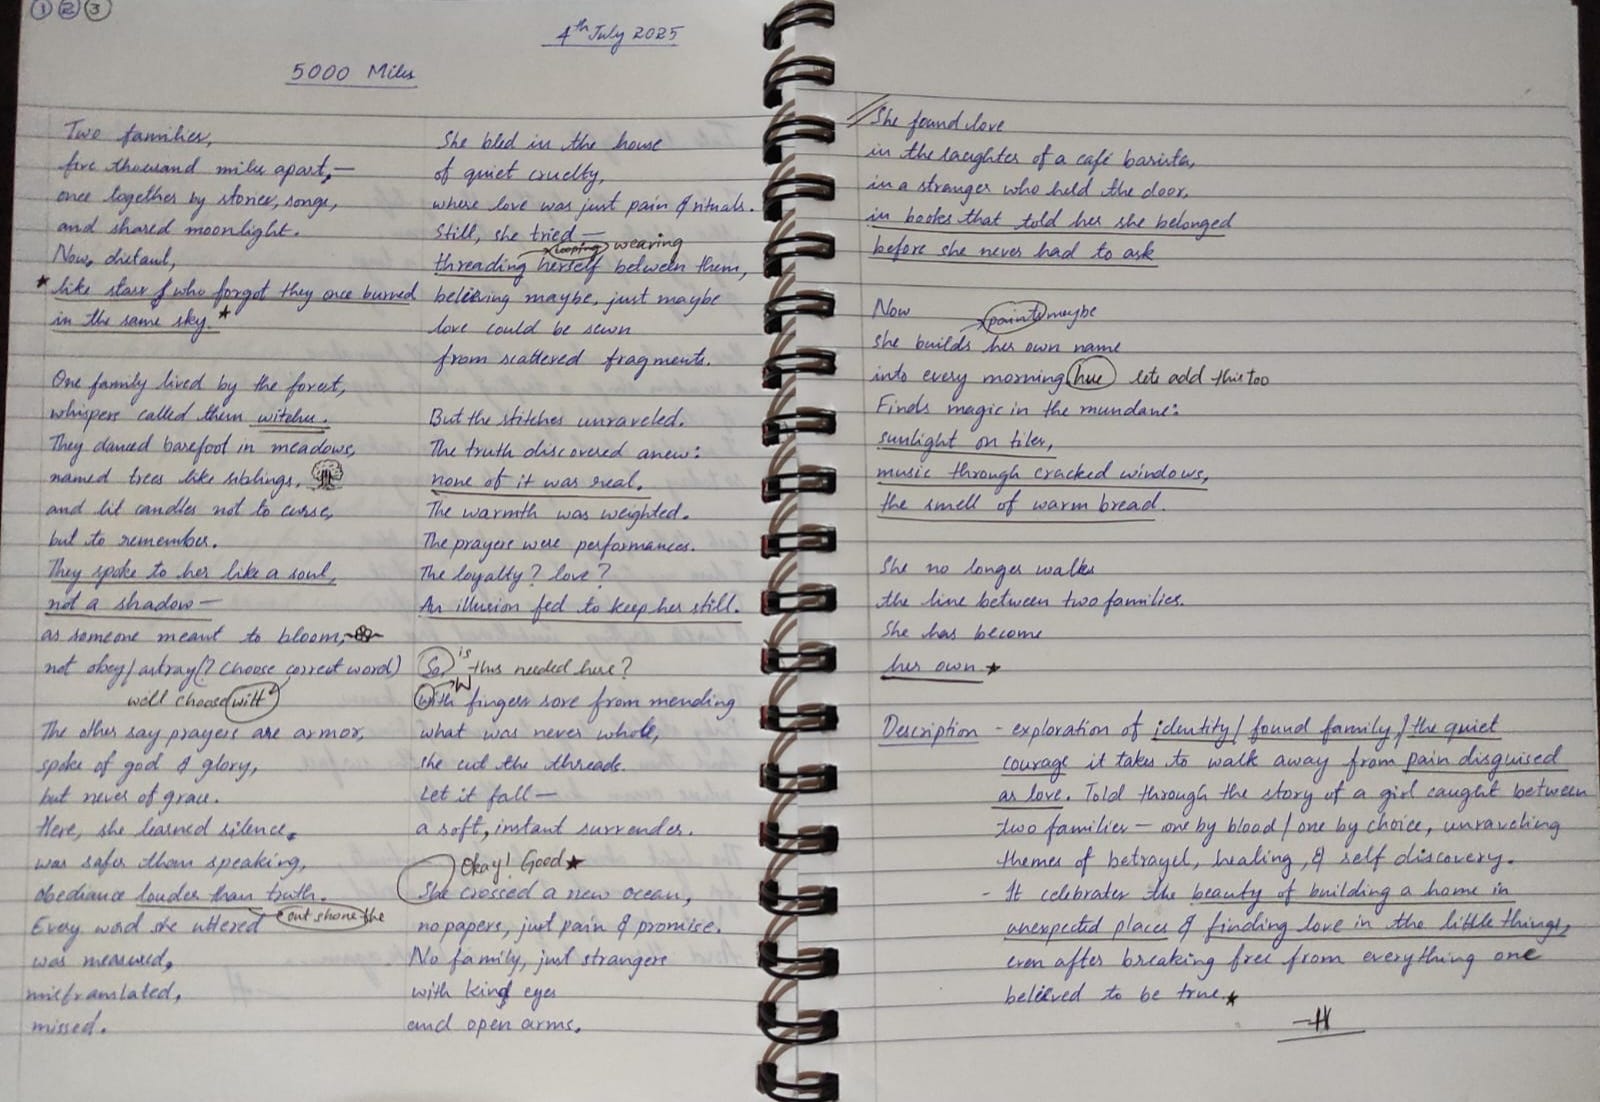 1 2 3
4th July 2025
5000 Miles
Two families,
five thousand miles apart,—
once together by stories, songs,
and shared moonlight.
Now, distant,
like stars who forgot they once burned
in the same sky.
One family lived by the forest,
whispers called them witches.
They danced barefoot in meadows,
named trees like siblings.
and lit candles not to curse,
but to remember.
They spoke to her like a soul,
not a shadow—
as someone meant to bloom,
not obey/astray(? choose correct word)
will choose wilt
The other say prayers are armor,
spoke of god & glory,
but never of grace.
Here, she learned silence,
was safer than speaking,
obediance louder than truth.
out shone the
Every word she uttered
was measured,
mistranslated,
missed.
She bled in the house
of quiet cruelty,
where love was just pain & rituals.
Still, she tried—
looping wearing
threading herself between them,
believing maybe, just maybe
love could be sewn
from scattered fragments.
But the stitches unraveled.
The truth discovered anew:
none of it was real.
The warmth was weighted.
The prayers were performances.
The loyalty? love?
An illusion fed to keep her still.
So, is this needed here?
W
with fingers sore from mending
what was never whole,
she cut the threads.
Let it fall—
a soft, instant surrender.
Okay! Good
She crossed a new ocean,
no papers, just pain & promise.
No family, just strangers
with kind eyes
and open arms.
She found love
in the laughter of a café barista,
in a stranger who held the door,
in books that told her she belonged
before she never had to ask
Now
paints maybe
she builds her own name
into every morning hue lets add this too
Finds magic in the mundane:
sunlight on tiles,
music through cracked windows,
the smell of warm bread.
She no longer walks
the line between two families.
She has become
her own
Description - exploration of identity/found family/the quiet
courage it takes to walk away from pain disguised
as love. Told through the story of a girl caught between
two families — one by blood/one by choice, unraveling
themes of betrayal, healing, & self discovery.
- It celebrates the beauty of building a home in
unexpected places & finding love in the little things,
even after breaking free from everything one
believed to be true.
—H